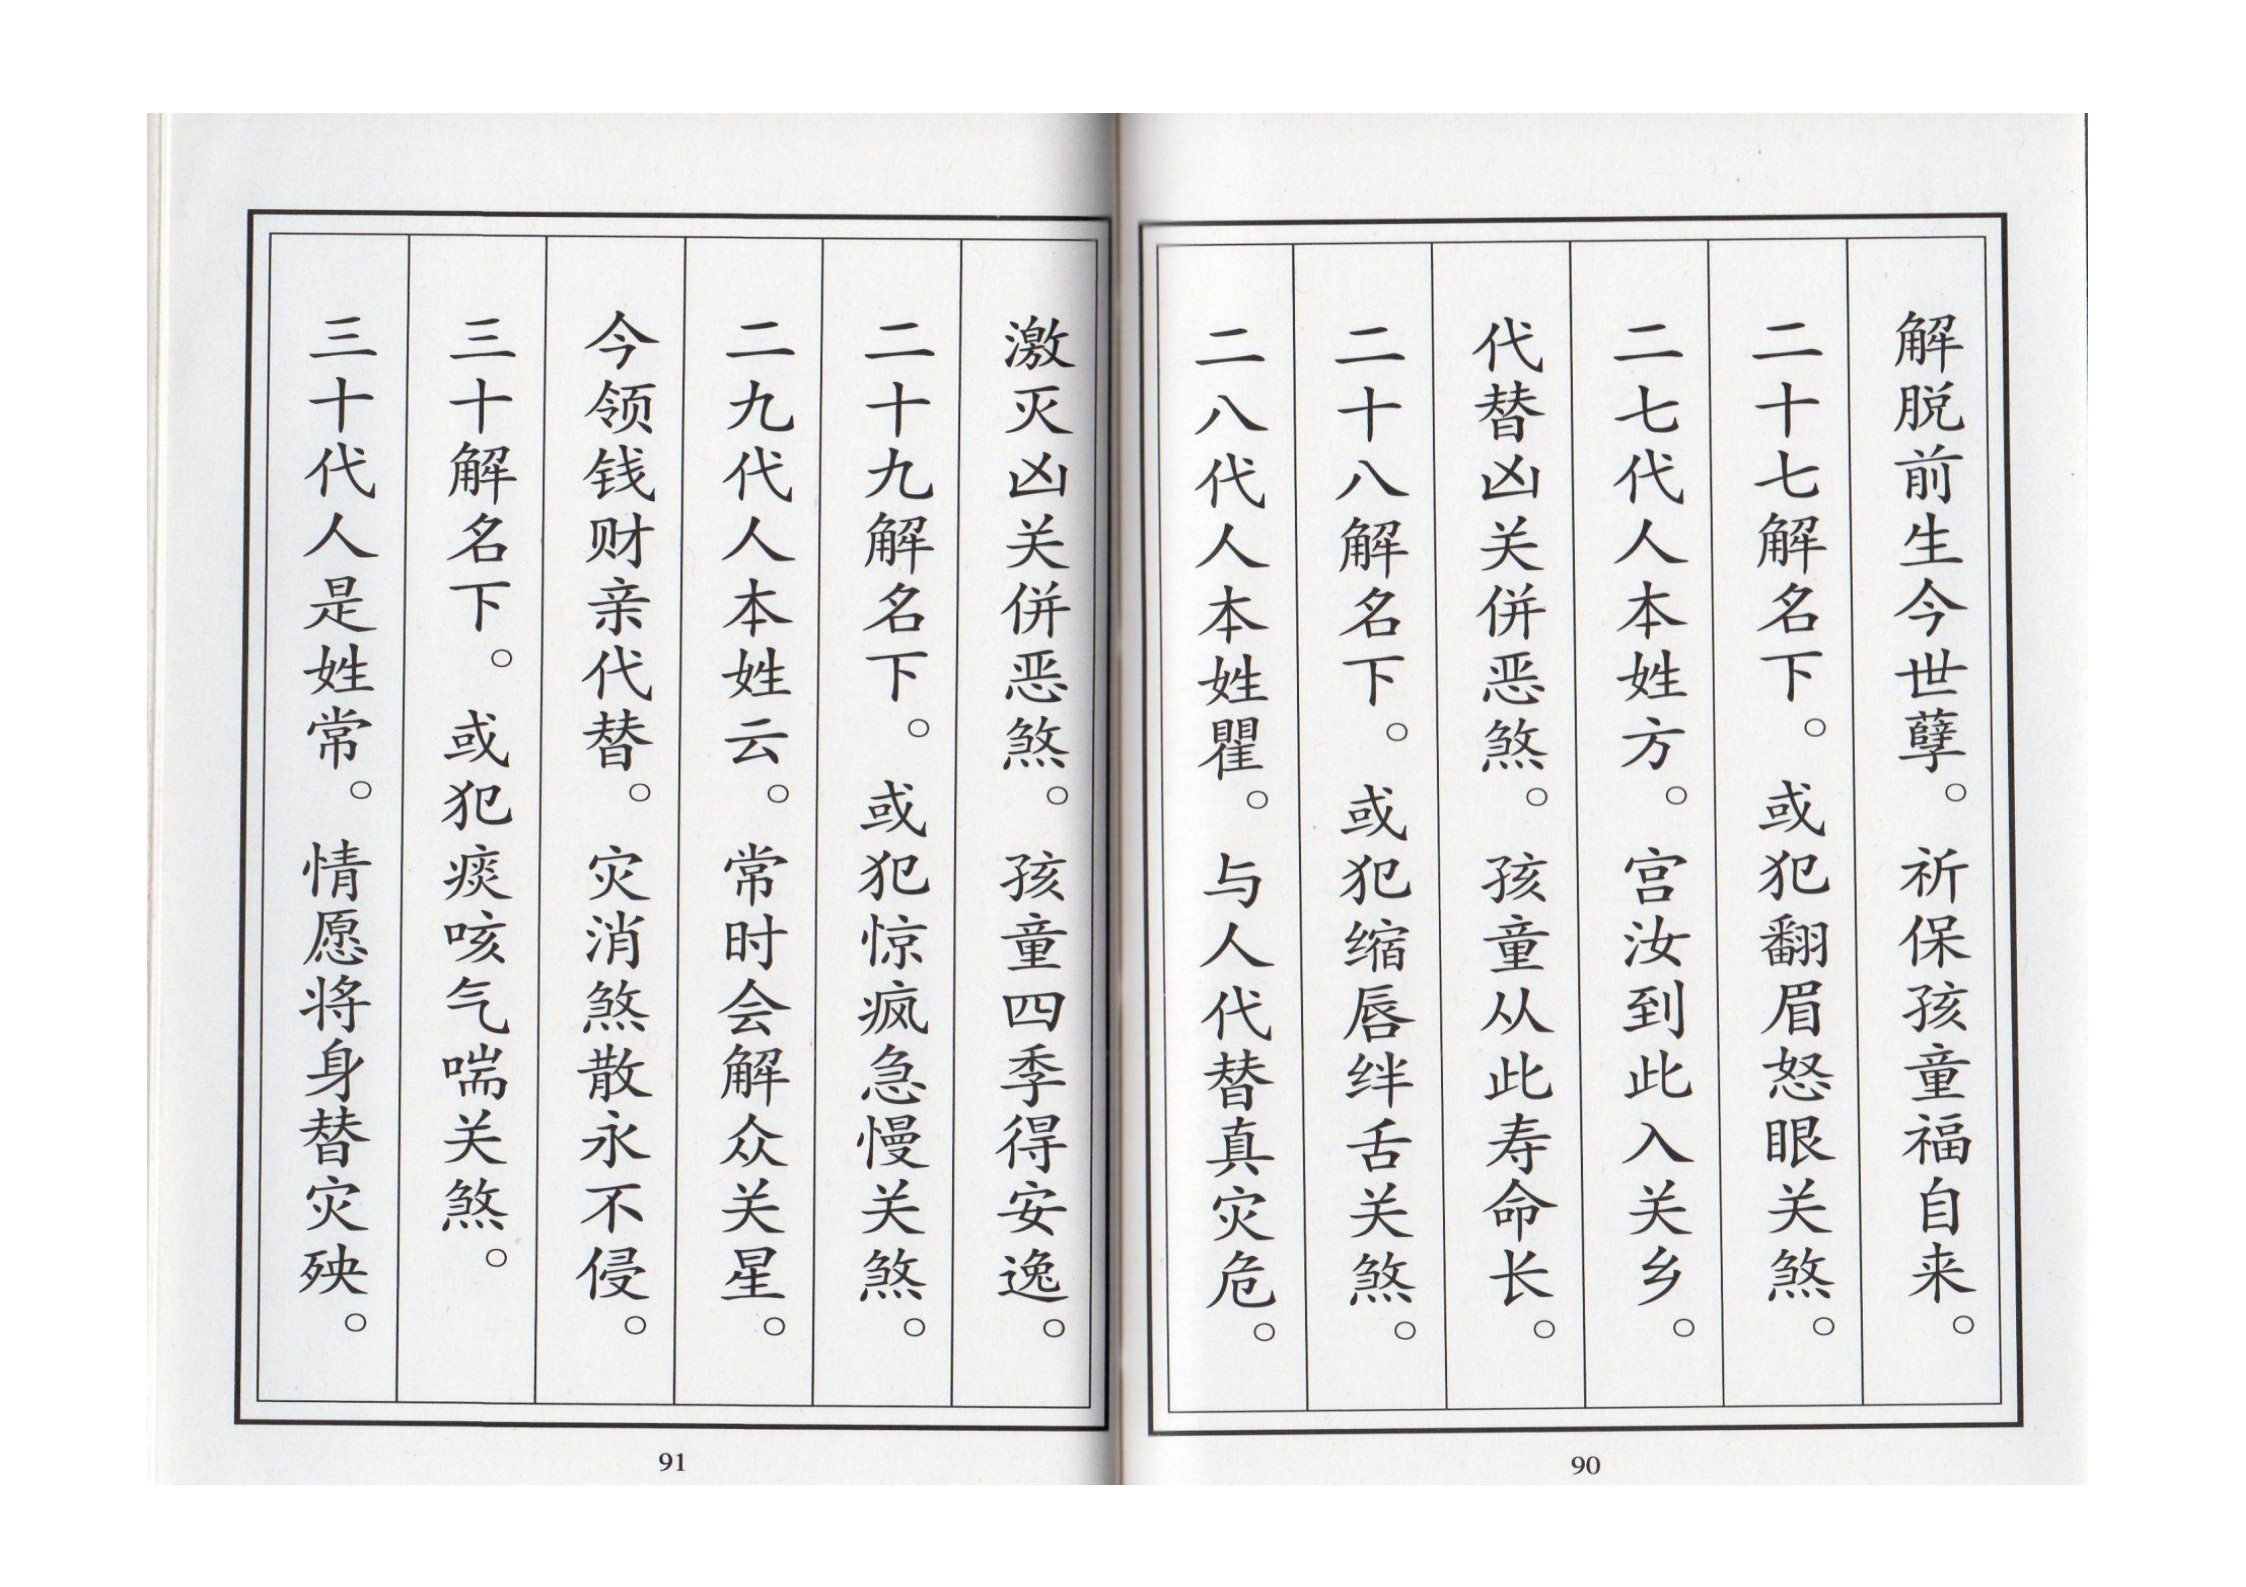 解脱前生今世孽。祈保孩童福自来。
二十七解名下。或犯翻眉怒眼关煞。
二七代人本姓方。宫汝到此入关乡。
代替凶关併恶煞。孩童从此寿命长。
二十八解名下。或犯缩唇绊舌关煞。
二八代人本姓瞿。与人代替真灾危。
90
激灭凶关併恶煞。孩童四季得安逸。
二十九解名下。或犯惊疯急慢关煞。
二九代人本姓云。常时会解众关星。
今领钱财亲代替。灾消煞散永不侵。
三十解名下。或犯痰咳气喘关煞。
三十代人是姓常。情愿将身替灾殃。
91